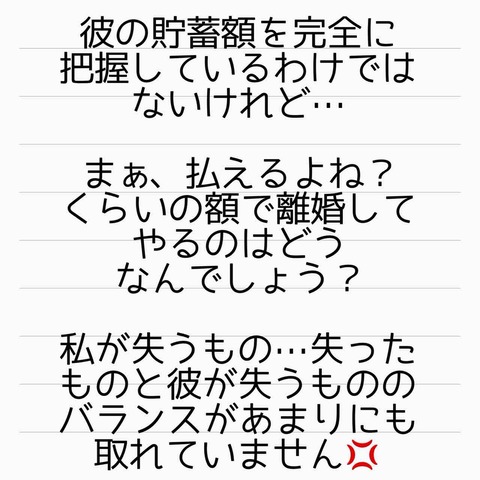 彼の貯蓄額を完全に
把握しているわけでは
ないけれど…
まぁ、払えるよね？
くらいの額で離婚して
やるのはどう
なんでしょう？
私が失うもの…失った
ものと彼が失うものの
バランスがあまりにも
取れていません💢